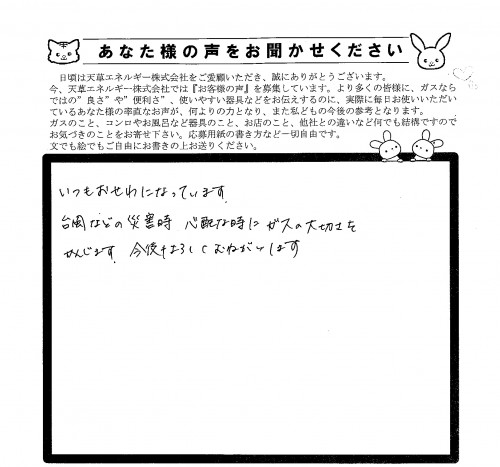 あなた様の声をお聞かせください
日頃は天草エネルギー株式会社をご愛顧いただき、誠にありがとうございます。
今、天草エネルギー株式会社では『お客様の声』を募集しています。より多くの皆様に、ガスなら
ではの”良さ”や”便利さ”、使いやすい器具などをお伝えするのに、実際に毎日お使いいただい
ているあなた様の率直なお声が、何よりの力となり、また私どもの今後の参考となります。
ガスのこと、コンロやお風呂など器具のこと、お店のこと、他社との違いなど何でも結構ですので
お気づきのことをお寄せ下さい。応募用紙の書き方など一切自由です。
文でも絵でもご自由にお書きの上お送りください。
いつもおせわになっています。
台風などの災害時 心配な時に ガスの大切さを
かんじます。今後もよろしくおねがいします